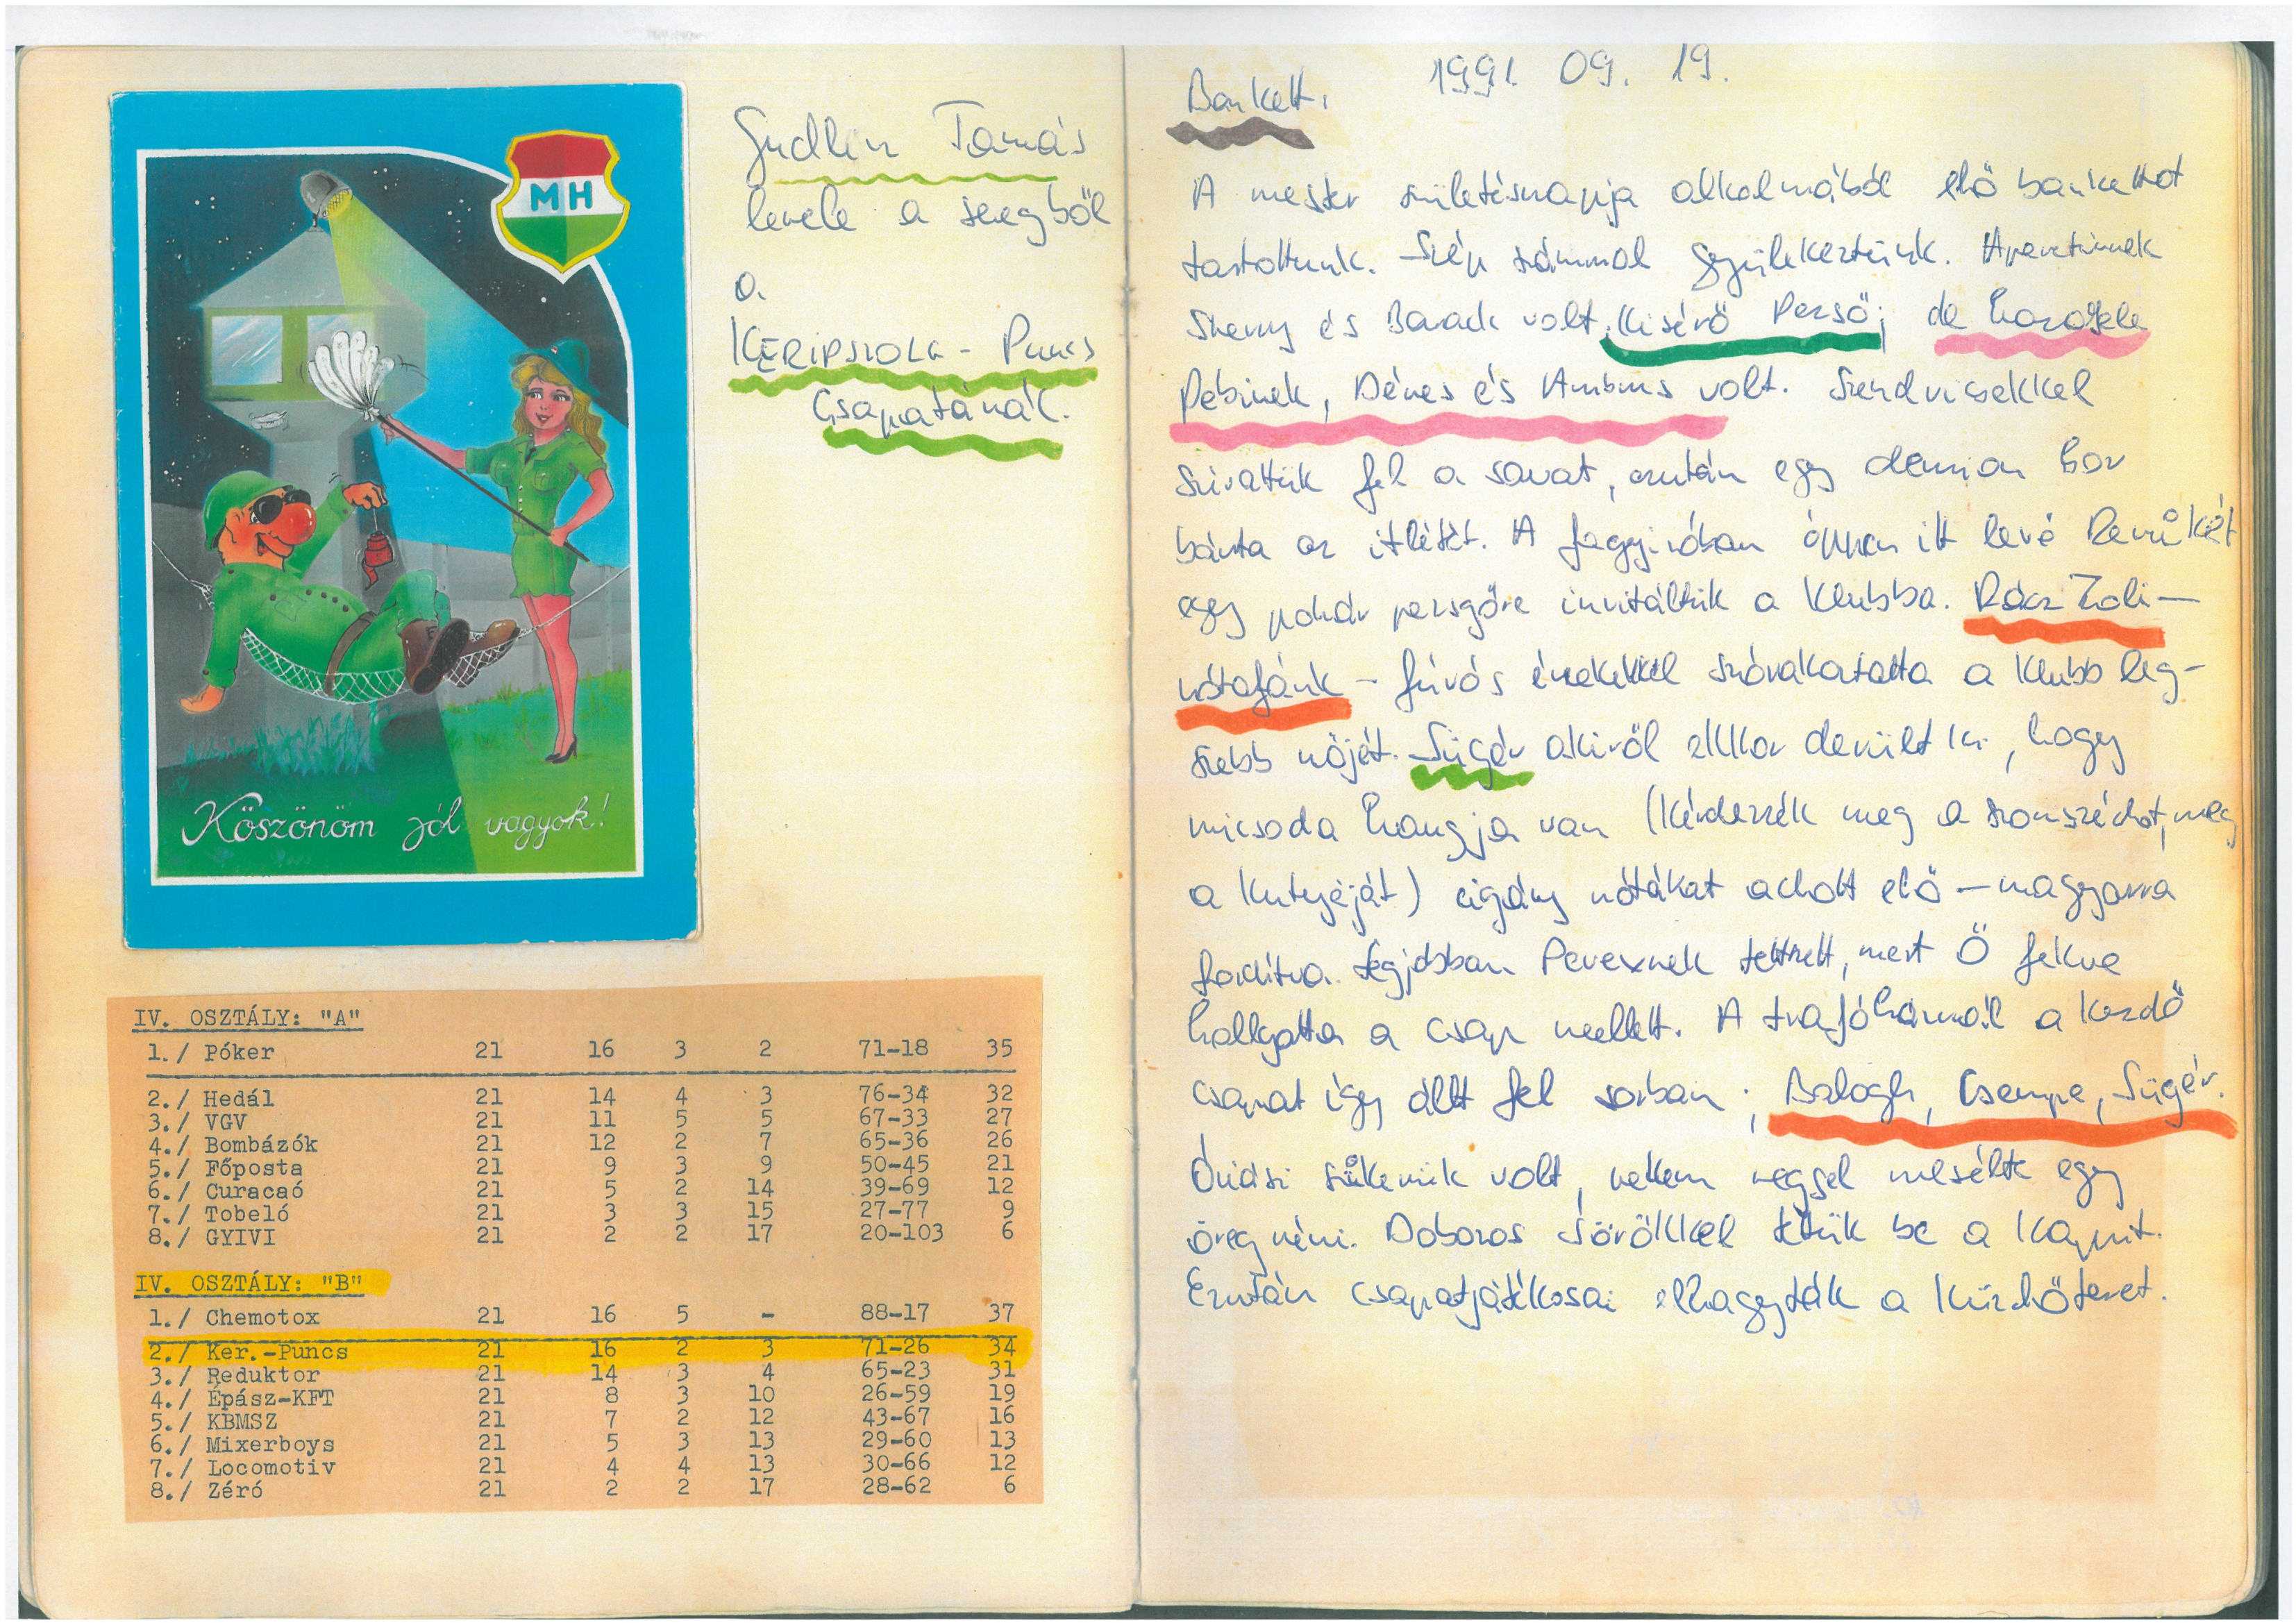 MH
Köszönöm jól vagyok!
Gudlin Tamás
levele a seregből
a
KERIPSZOLG - Puncs
Csapatának.
IV. OSZTÁLY: "A"
1./ Póker 21 16 3 2 71-18 35
2./ Hedál 21 14 4 3 76-34 32
3./ VGV 21 11 5 5 67-33 27
4./ Bombázók 21 12 2 7 65-36 26
5./ Főposta 21 9 3 9 50-45 21
6./ Curacaó 21 5 2 14 39-69 12
7./ Tobeló 21 3 3 15 27-77 9
8./ GYIVI 21 2 2 17 20-103 6
IV. OSZTÁLY: "B"
1./ Chemotox 21 16 5 - 88-17 37
2./ Ker.-Puncs 21 16 2 3 71-26 34
3./ Reduktor 21 14 3 4 65-23 31
4./ Épász-KFT 21 8 3 10 26-59 19
5./ KBMSZ 21 7 2 12 43-67 16
6./ Mixerboys 21 5 3 13 29-60 13
7./ Locomotiv 21 4 4 13 30-66 12
8./ Zéró 21 2 2 17 28-62 6
Bankett. 1991. 09. 19.
A mester születésnapja alkalmából elő bankettot
tartottunk. Szép számmal gyülekeztünk. Aperitifnek
Sherry és Barack volt. Kisérő Perső; de
Pebinek, Dénes és Ambrus volt. Szendvicsekkel
szívattuk fel a savat, ezután egy demizson bor
bánta az ittlétét. A fagyizóban éppen itt levő
egy pohár pezsgőre invitáltuk a Klubba. Rácz Zoli -
nótafánk - fúvós énekekkel szórakoztatta a Klubb leg-
szebb nőjét. Sügér akiről ekkor derült ki, hogy
micsoda hangja van (kérdezzék meg a szomszédot, meg
a kutyáját) cigány nótákat adott elő - magyarra
fordítva. Legjobban Perexnek tettszett, mert Ő fekve
hallgatta a csap mellett. A trafóháznál a kezdő
csapat így állt fel sorban; Balogh, Csempe, Sügér.
Óriási sikerük volt, nekem reggel mesélte egy
öreg néni. Dobozos sörökkel tettük be a kaput.
Ezután csapatjátékosai elhagyták a küzdőteret.